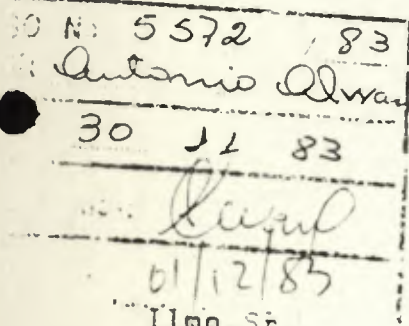 Nº 5572 / 83
Antonio Alva
30 11 83
01/12/83
Ilmo Sr